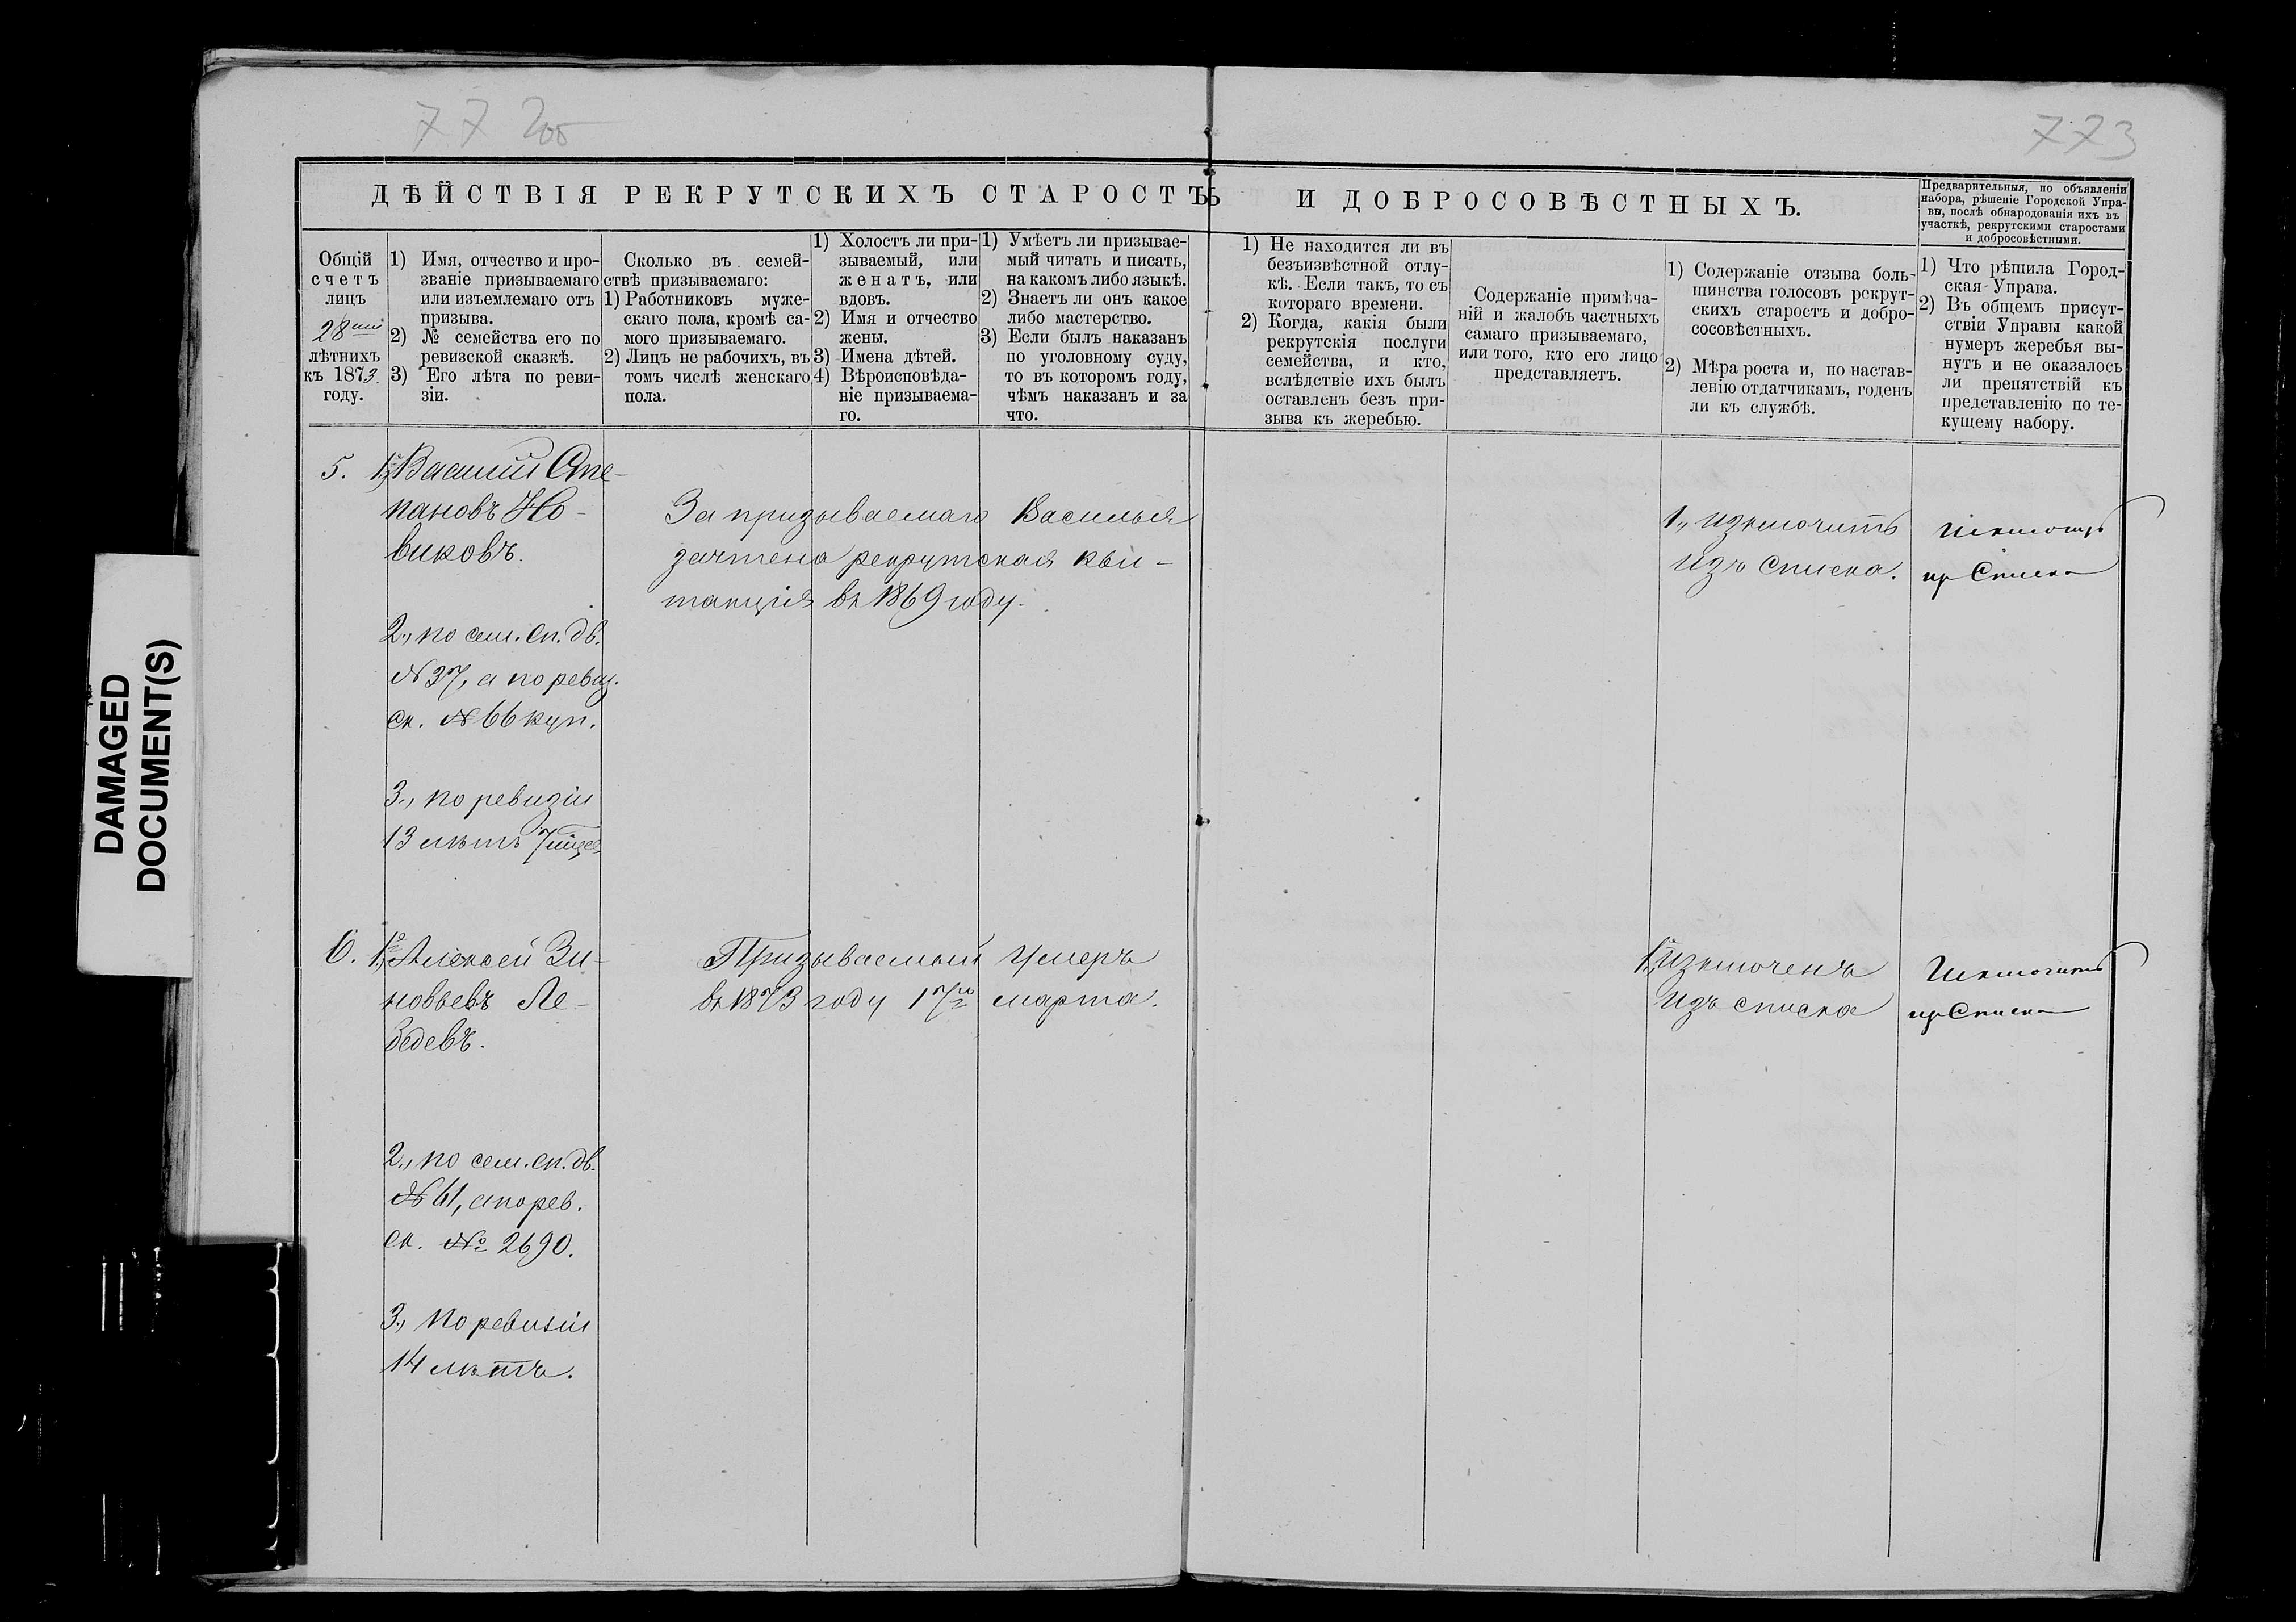 772об
773
ДѢЙСТВІЯ РЕКРУТСКИХЪ СТАРОСТЪ И ДОБРОСОВѢСТНЫХЪ.
Предварительныя, по объявленіи
набора, рѣшеніе Городской Упра-
вы, послѣ обнародованія ихъ въ
участкѣ, рекрутскими старостами
и добросовѣстными.
Общій
счетъ
лицъ
28ми
лѣтнихъ
къ 1873
году.
1) Имя, отчество и про-
званіе призываемаго
или изъемлемаго отъ
призыва.
2) № семейства его по
ревизской сказкѣ.
3) Его лѣта по реви-
зіи.
Сколько въ семей-
ствѣ призываемаго:
1) Работниковъ муже-
скаго пола, кромѣ са-
мого призываемаго.
2) Лицъ не рабочихъ, въ
томъ числѣ женскаго
пола.
1) Холостъ ли при-
зываемый, или
женатъ, или
вдовъ.
2) Имя и отчество
жены.
3) Имена дѣтей.
4) Вѣроисповѣда-
ніе призываема-
го.
1) Умѣетъ ли призывае-
мый читать и писать,
на какомъ либо языкѣ.
2) Знаетъ ли онъ какое
либо мастерство.
3) Если былъ наказанъ
по уголовному суду,
то въ которомъ году,
чѣмъ наказанъ и за
что.
1) Не находится ли въ
безъизвѣстной отлу-
кѣ. Если такъ, то съ
котораго времени.
2) Когда, какія были
рекрутскія послуги
семейства, и кто,
вслѣдствіе ихъ былъ
оставленъ безъ при-
зыва къ жеребью.
Содержаніе примѣча-
ній и жалобъ частныхъ
самаго призываемаго,
или того, кто его лицо
представляетъ.
1) Содержаніе отзыва боль-
шинства голосовъ рекрут-
скихъ старостъ и добро-
совѣстныхъ.
2) Мѣра роста и, по настав-
ленію отдатчикамъ, годенъ
ли къ службѣ.
1) Что рѣшила Город-
ская Управа.
2) Въ общемъ присут-
ствіи Управы какой
нумеръ жеребья вы-
нутъ и не оказалось
ли препятствій къ
представленію по те-
кущему набору.
5. 1., Василій Сте-
пановъ Но-
виковъ.
2., по сем. сп. дв.
№ 37, а по ревиз.
ск. № 66 куп.
3., по ревизіи
13 лѣтъ 7 мѣс.
За призываемаго Василья
зачтена рекрутская кви-
танція въ 1869 году.
1., изключить
изъ списка.
Исключить
изъ Списка
6. 1., Алексей Зи-
новьевъ Ле-
бедевъ.
2., по сем. сп. дв.
№ 61, а по рев.
ск. № 2690.
3., по ревизіи
14 лѣтъ.
Призываемый умеръ
въ 1873 году 17го марта.
1., изключенъ
изъ списка
Исключить
изъ Списка
DAMAGED
DOCUMENT(S)